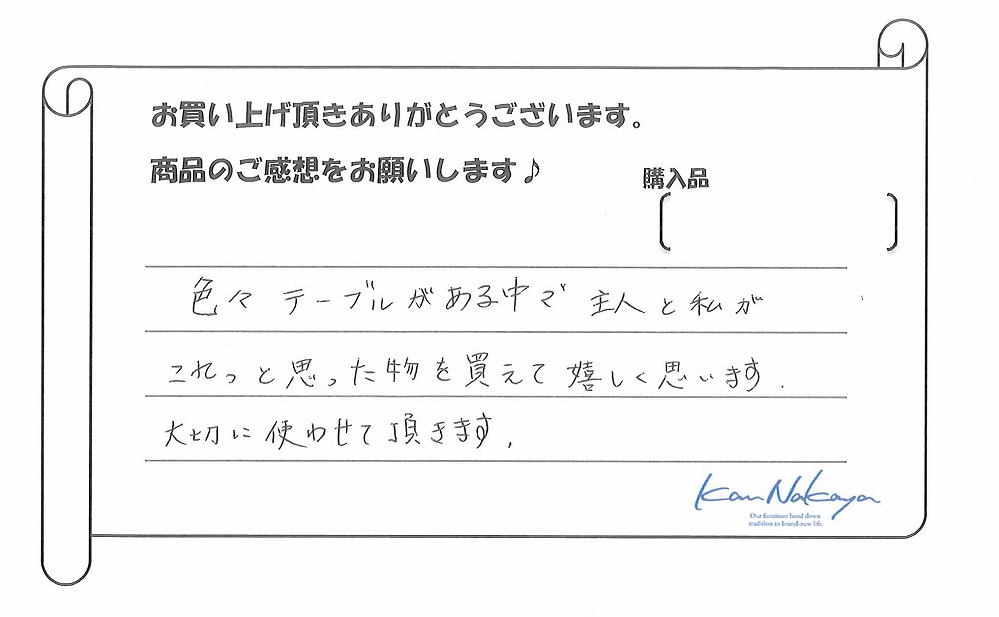 お買い上げ頂きありがとうございます。
商品のご感想をお願いします♪
購入品
色々 テーブルがある中で 主人と私が
これっと思った物を買えて嬉しく思います.
大切に使わせて頂きます.
Kan Nakaya
Our furniture hand down
tradition to brand-new life.